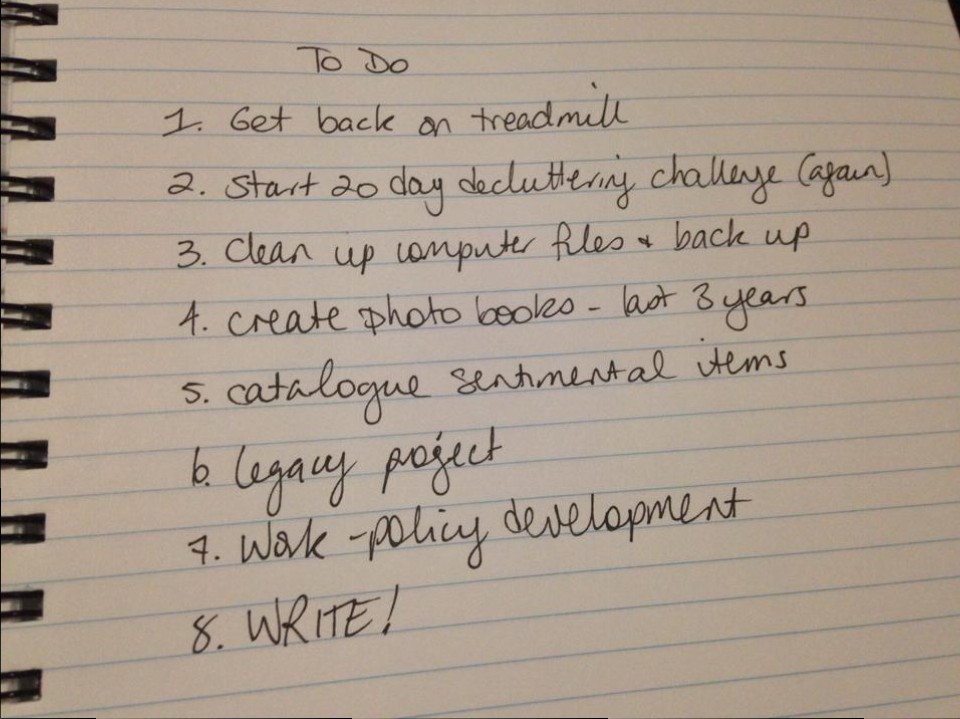 To Do
1. Get back on treadmill
2. Start 20 day decluttering challenge (again)
3. Clean up computer files & back up
4. create photo books - last 3 years
5. catalogue sentimental items
6. legacy project
7. Work - policy development
8. WRITE!